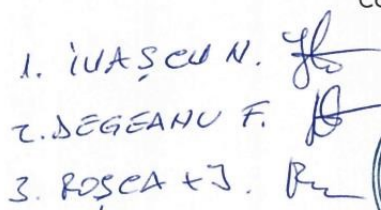 1. IVAȘCU N.
2. DEGEANU F.
3. ROȘCA I.